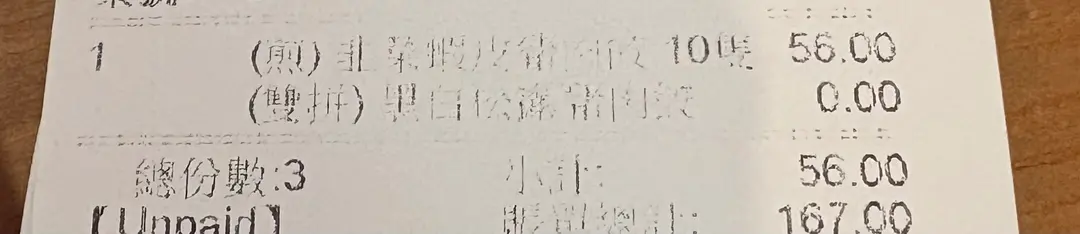 1 (煎) 韭菜蝦皮 10隻 56.00
(雙拼) 黑白松露 0.00
總份數:3 小計: 56.00
【Unpaid】 賬單總計: 167.00